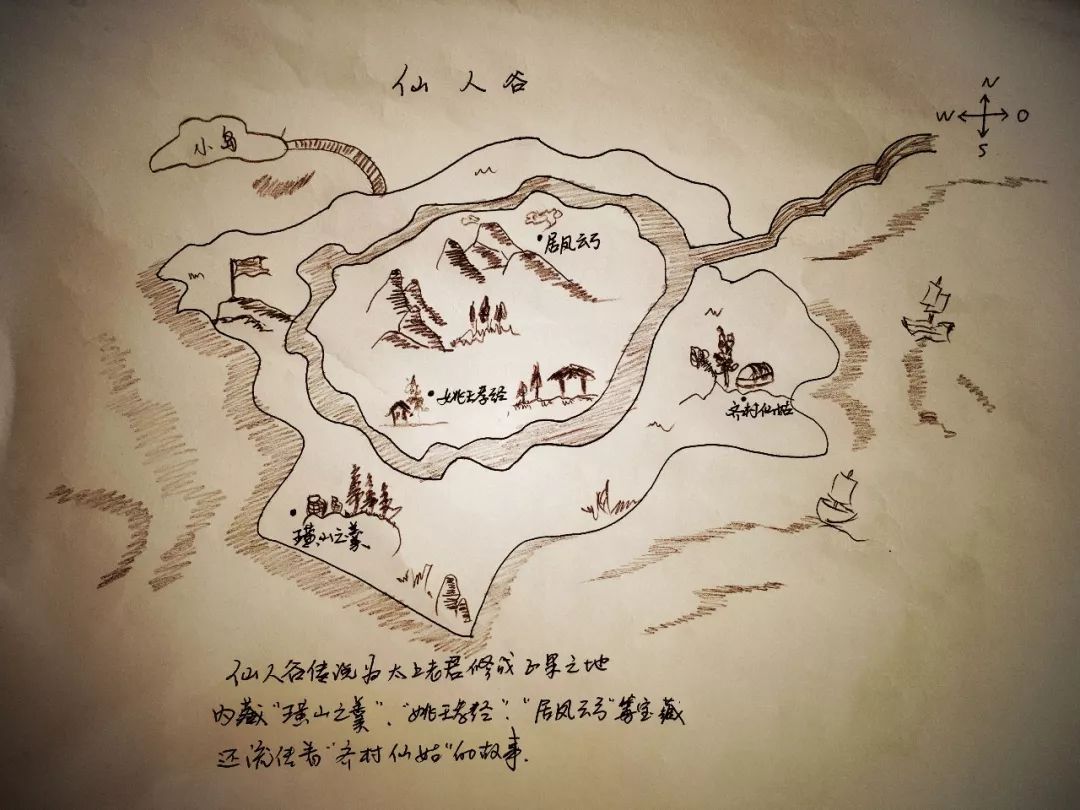 仙人谷
N
W O
S
小岛
居凤云弓
姚王孝经
齐村仙姑
璜山之羹
仙人谷传说为太上老君修成正果之地
内藏"璜山之羹"、"姚王孝经"、"居凤云弓"等宝藏
还流传着"齐村仙姑"的故事.